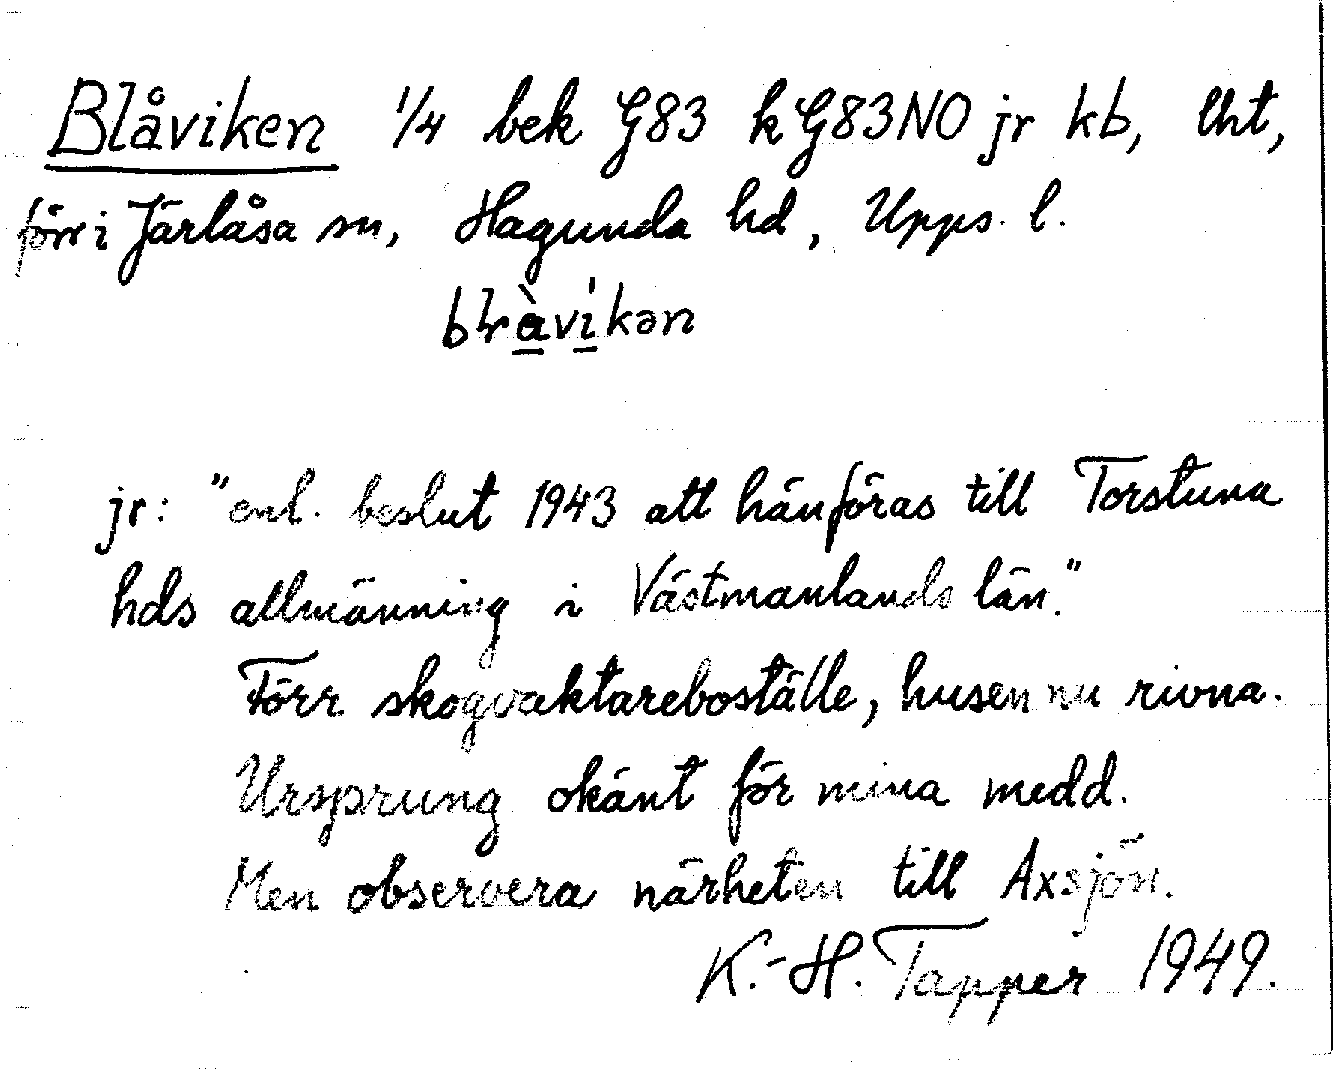 Blåviken 1/4 bek G83 kG83NO jr kb, lht,
förr i Järlåsa sn, Hagunda hd, Upps. l.
blr̀avi̍kən
jr: "enl. beslut 1943 att hänföras till Torstuna
hds allmänning i Västmanlands län."
Förr skogvaktareboställe, husen nu rivna.
Ursprung okänt för mina medd.
Men observera närheten till Axsjön.
K.-H. Tapper 1949.